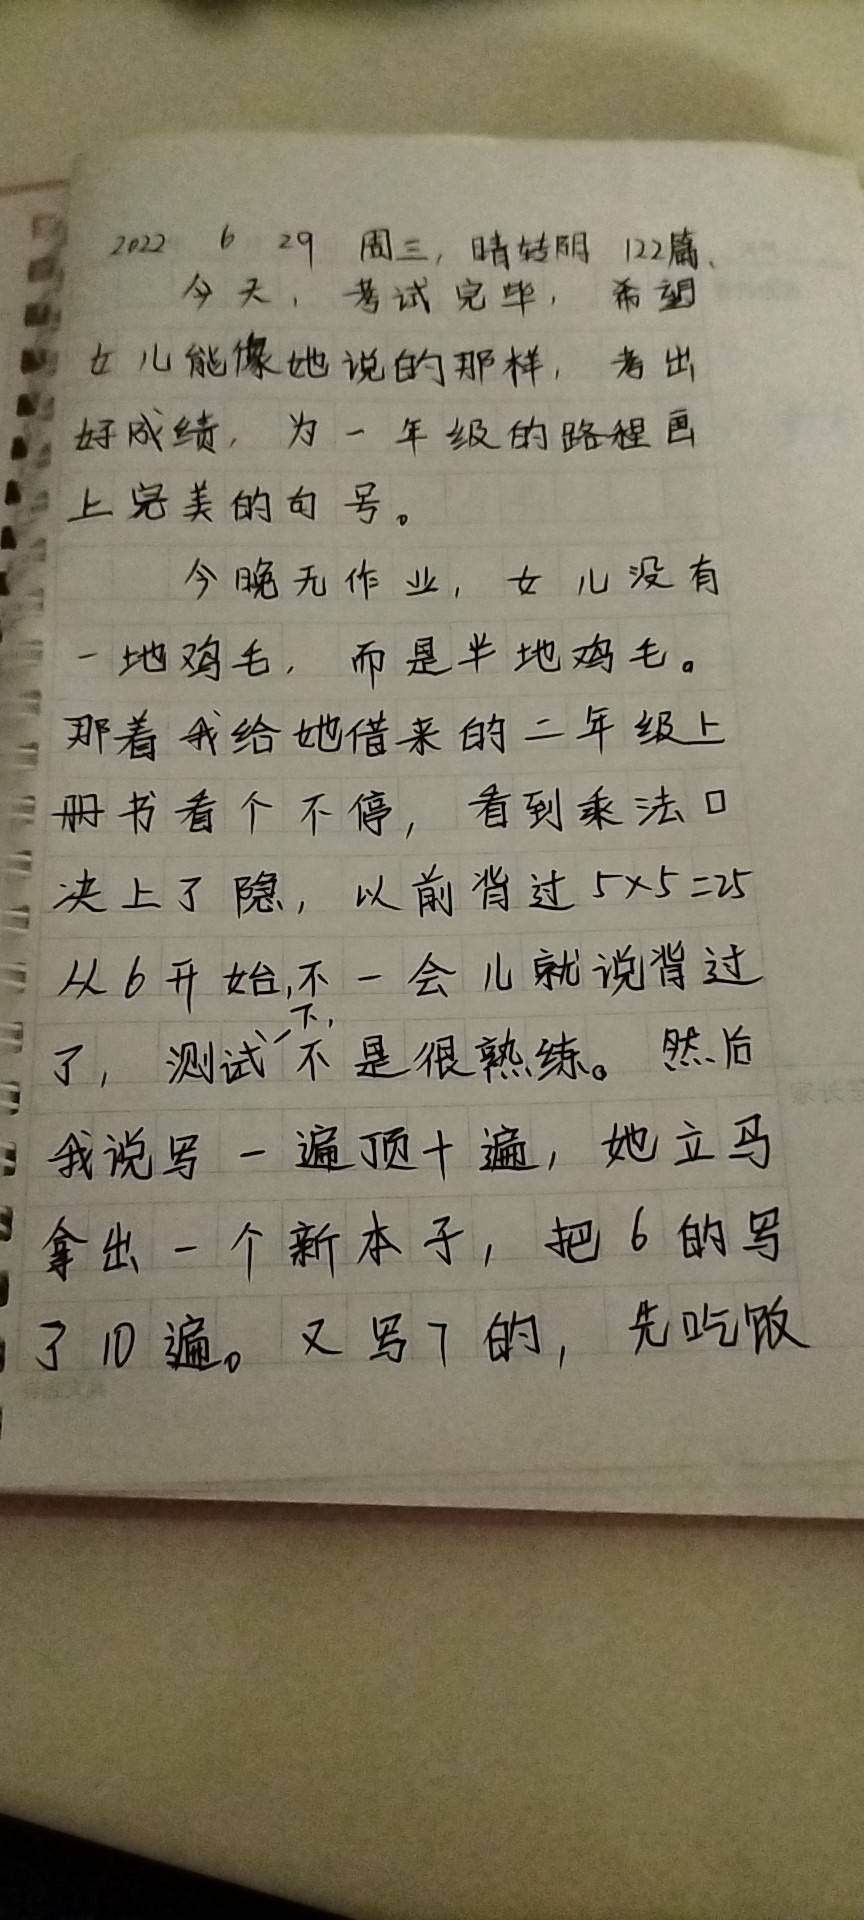 2022 6 29 周三，晴转阴 122篇、
今天，考试完毕，希望
女儿能像她说的那样，考出
好成绩，为一年级的路程画
上完美的句号。
今晚无作业，女儿没有
一地鸡毛，而是半地鸡毛。
那着我给她借来的二年级上
册书看个不停，看到乘法口
决上了隐，以前背过5×5=25
从6开始,不一会儿就说背过
了，测试一下，不是很熟练。然后
我说写一遍顶十遍，她立马
拿出一个新本子，把6的写
了10遍。又写7的，先吃饭